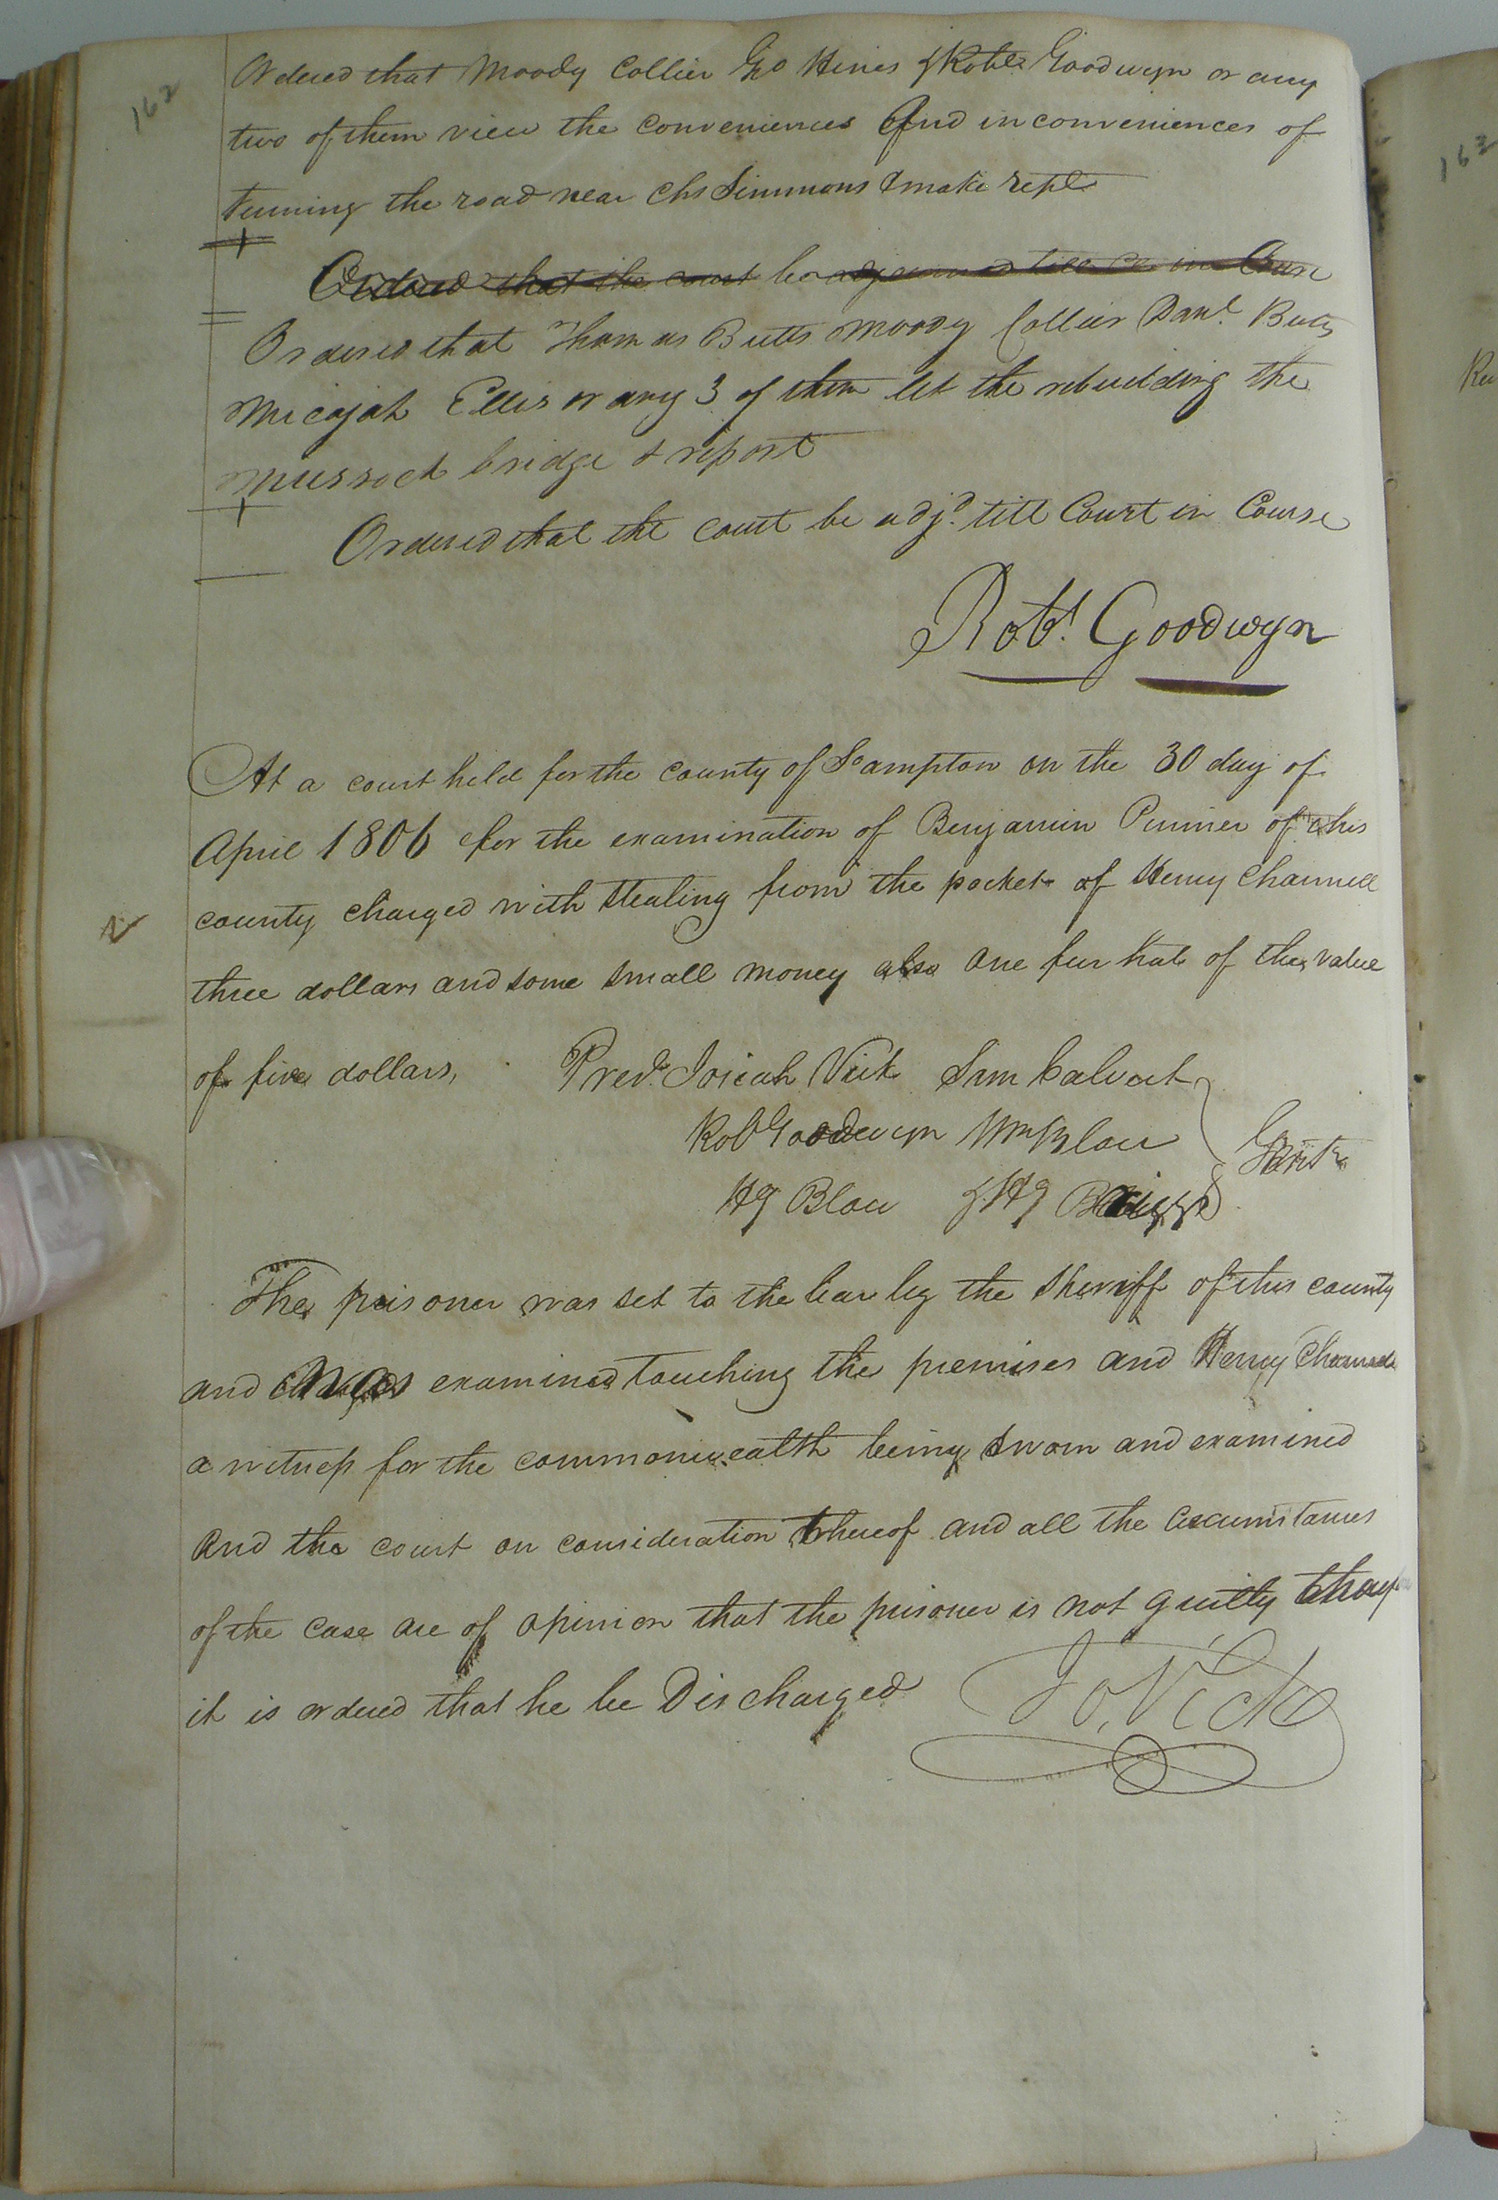 162
Ordered that Moody Collier Geo Hines & Robt Goodwyn or any
two of them view the conveniences And inconveniences of
turning the road near Chs Simmons & make rept
Ordered that the court be adjourned till Ct in Course
Ordered that Thomas Butts Moody Collier Danl. Butts
Micajah Ellis or any 3 of them let the rebuilding the
bridge & report
Ordered that the court be adjd. till Court in Course
Robt. Goodwyn
At a court held for the county of So ampton on the 30 day of
April 1806 for the examination of Benjamin Pinner of this
county charged with stealing from the pocket of Henry Channell
three dollars and some small money also one fur hat of the value
of five dollars, Prest. Josiah Vick Sam Calvert
Rob Goodwyn Wm Blow
Hy Blow & Hy Briggs
Gent
The prisoner was set to the bar by the Sheriff of this county
and was examined touching the premises and Henry Channell
a witness for the commonwealth being sworn and examined
And the court on consideration thereof and all the Circumstances
of the case are of opinion that the prisoner is not guilty
it is ordered that he be Discharged
Jo. Vick
163